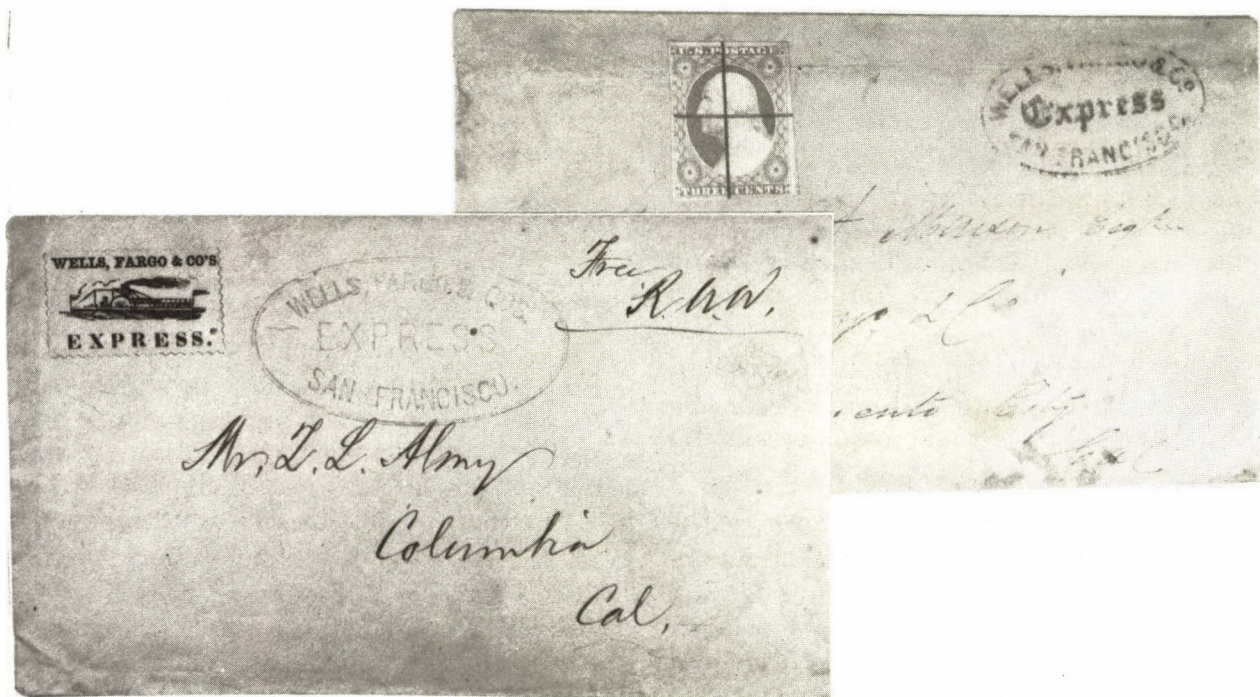 U.S. POSTAGE
THREE CENTS
WELLS, FARGO & Co
Express
SAN FRANCISCO
& Co
City
WELLS, FARGO & CO'S
EXPRESS.
WELLS, FARGO & CO'S
EXPRESS
SAN FRANCISCO.
Free
Mr, L. Almy
Columbia
Cal,